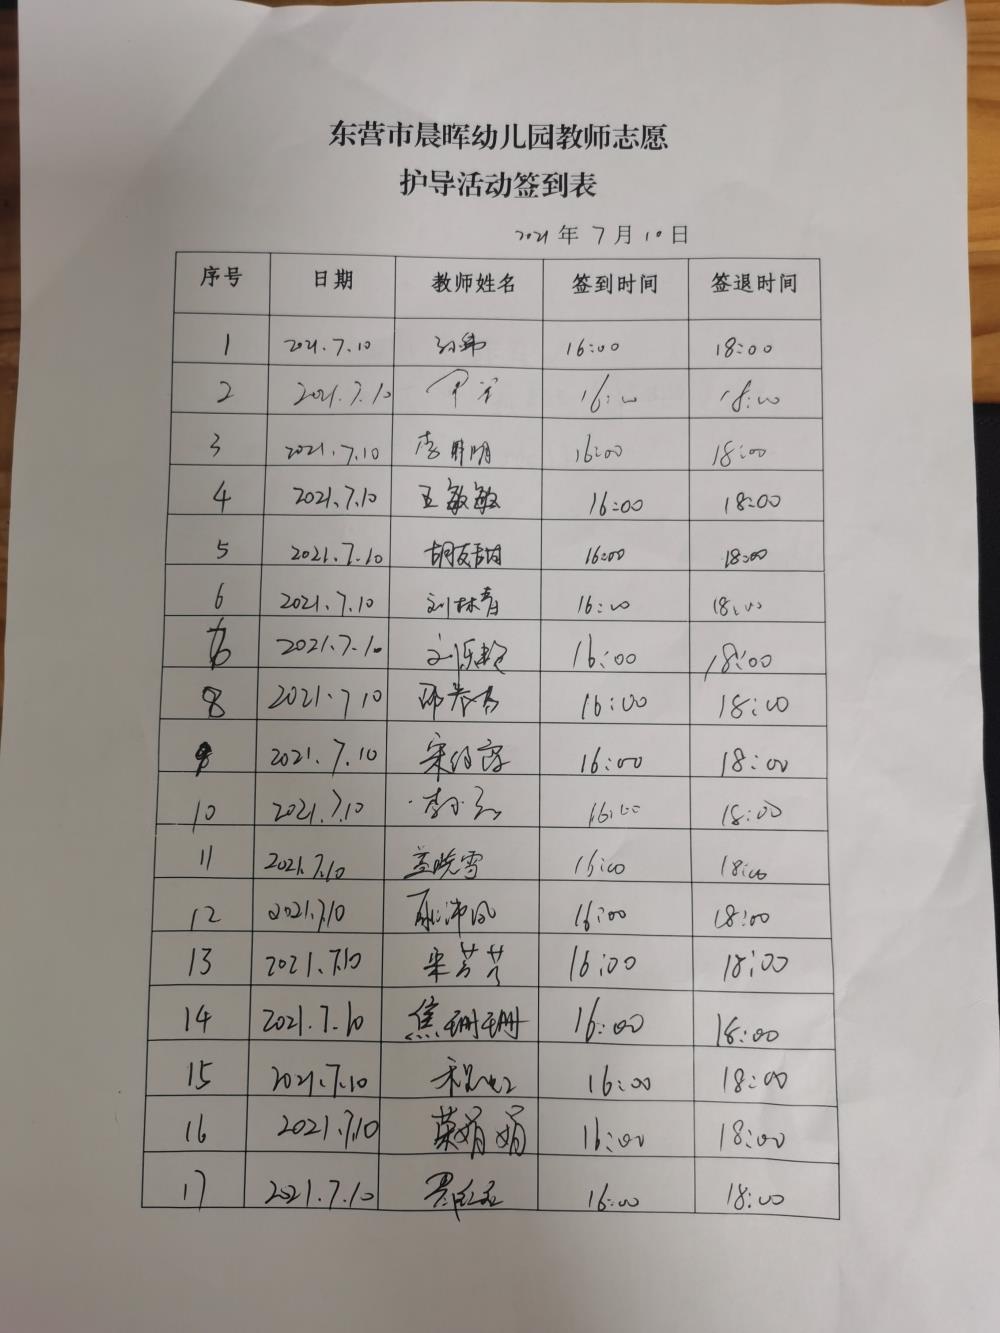 东营市晨晖幼儿园教师志愿
护导活动签到表
2021年7月10日
序号 日期 教师姓名 签到时间 签退时间
1 2021.7.10 16:00 18:00
2 2021.7.10 16:00 18:00
3 2021.7.10 16:00 18:00
4 2021.7.10 王敏敏 16:00 18:00
5 2021.7.10 16:00 18:00
6 2021.7.10 刘林青 16:00 18:00
2021.7.10 16:00 18:00
8 2021.7.10 16:00 18:00
9 2021.7.10 16:00 18:00
10 2021.7.10 16:00 18:00
11 2021.7.10 16:00 18:00
12 2021.7.10 16:00 18:00
13 2021.7.10 16:00 18:00
14 2021.7.10 焦珊珊 16:00 18:00
15 2021.7.10 16:00 18:00
16 2021.7.10 16:00 18:00
17 2021.7.10 16:00 18:00